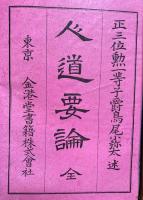 正三位勲一等子爵鳥尾小弥太述
心道要論 全
東京 金港堂書籍株式會社